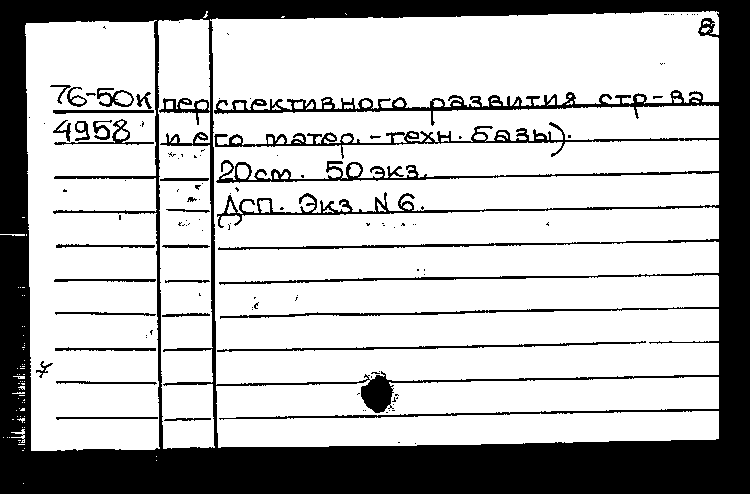 8
76-50к перспективного развития стр-ва
4958 и его матер.-техн. базы).
20см. 50 экз.
ДСП. Экз. N 6.